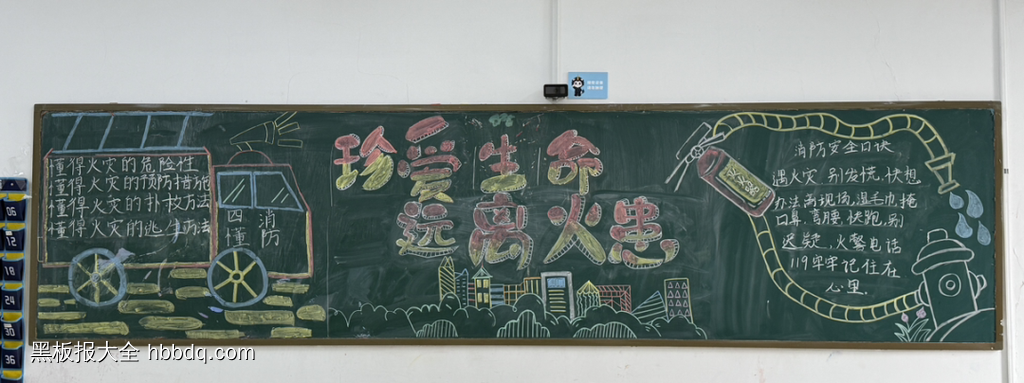 懂得火灾的危险性
懂得火灾的预防措施
懂得火灾的扑救方法
懂得火灾的逃生方法
四懂
消防
珍爱生命
远离火患
灭火器
消防安全口诀
遇火灾,别发慌,快想
办法离现场,湿毛巾,掩
口鼻,弯腰快跑,别
迟疑,火警电话
119牢牢记住在
心里.
06
12
18
24
30
36
黑板报大全 hbbdq.com